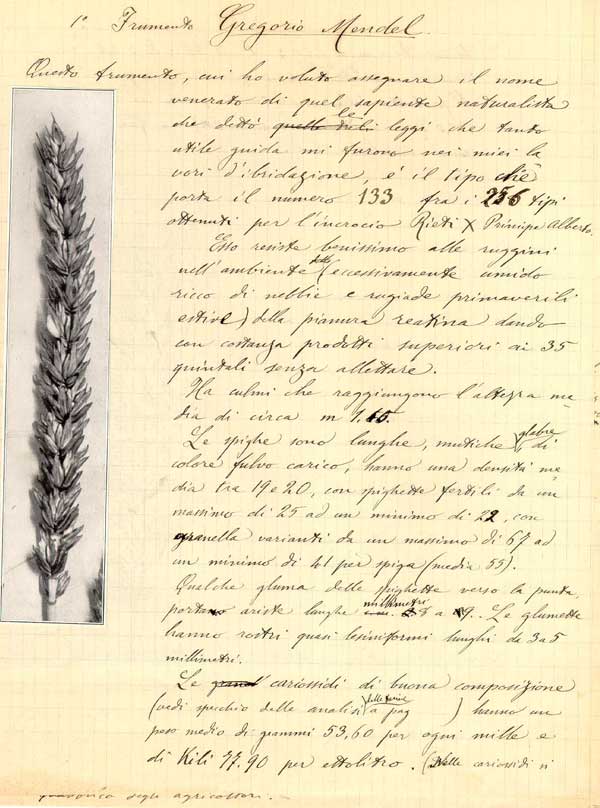 1º Frumento Gregorio Mendel.
Questo frumento, cui ho voluto assegnare il nome
venerato di quel sapiente naturalista
che dettò le leggi che tanto
utile guida mi furono nei miei la
vori d'ibridazione, è il tipo che
porta il numero 133 fra i 256 tipi
ottenuti per l'incrocio Rieti X Principe Alberto.
Esso resiste benissimo alle ruggini
nell'ambiente (eccessivamente umido
ricco di nebbie e rugiade primaverili
estive) della pianura reatina dando
con costanza prodotti superiori ai 35
quintali senza allettare.
Ha culmi che raggiungono l'altezza me
dia di circa m 1,
Le spighe sono lunghe, mutiche, glabre, di
colore fulvo carico, hanno una densità me
dia tra 19 e 20, con spighette fertili da un
massimo di 25 ad un minimo di 22, con
granella varianti da un massimo di 67 ad
un minimo di 41 per spiga (media 55).
Qualche gluma delle spighette verso la punta,
portano ariste lunghe millimetri 8 a 9. Le glumette
hanno rostri quasi lesiniformi lunghi da 3 a 5
millimetri.
Le cariossidi di buona composizione
(vedi specchio delle analisi delle farine a pag ) hanno un
peso medio di grammi 53,60 per ogni mille e
di Kili 77,90 per ettolitro. (Nelle cariossidi si
degli agricoltori.